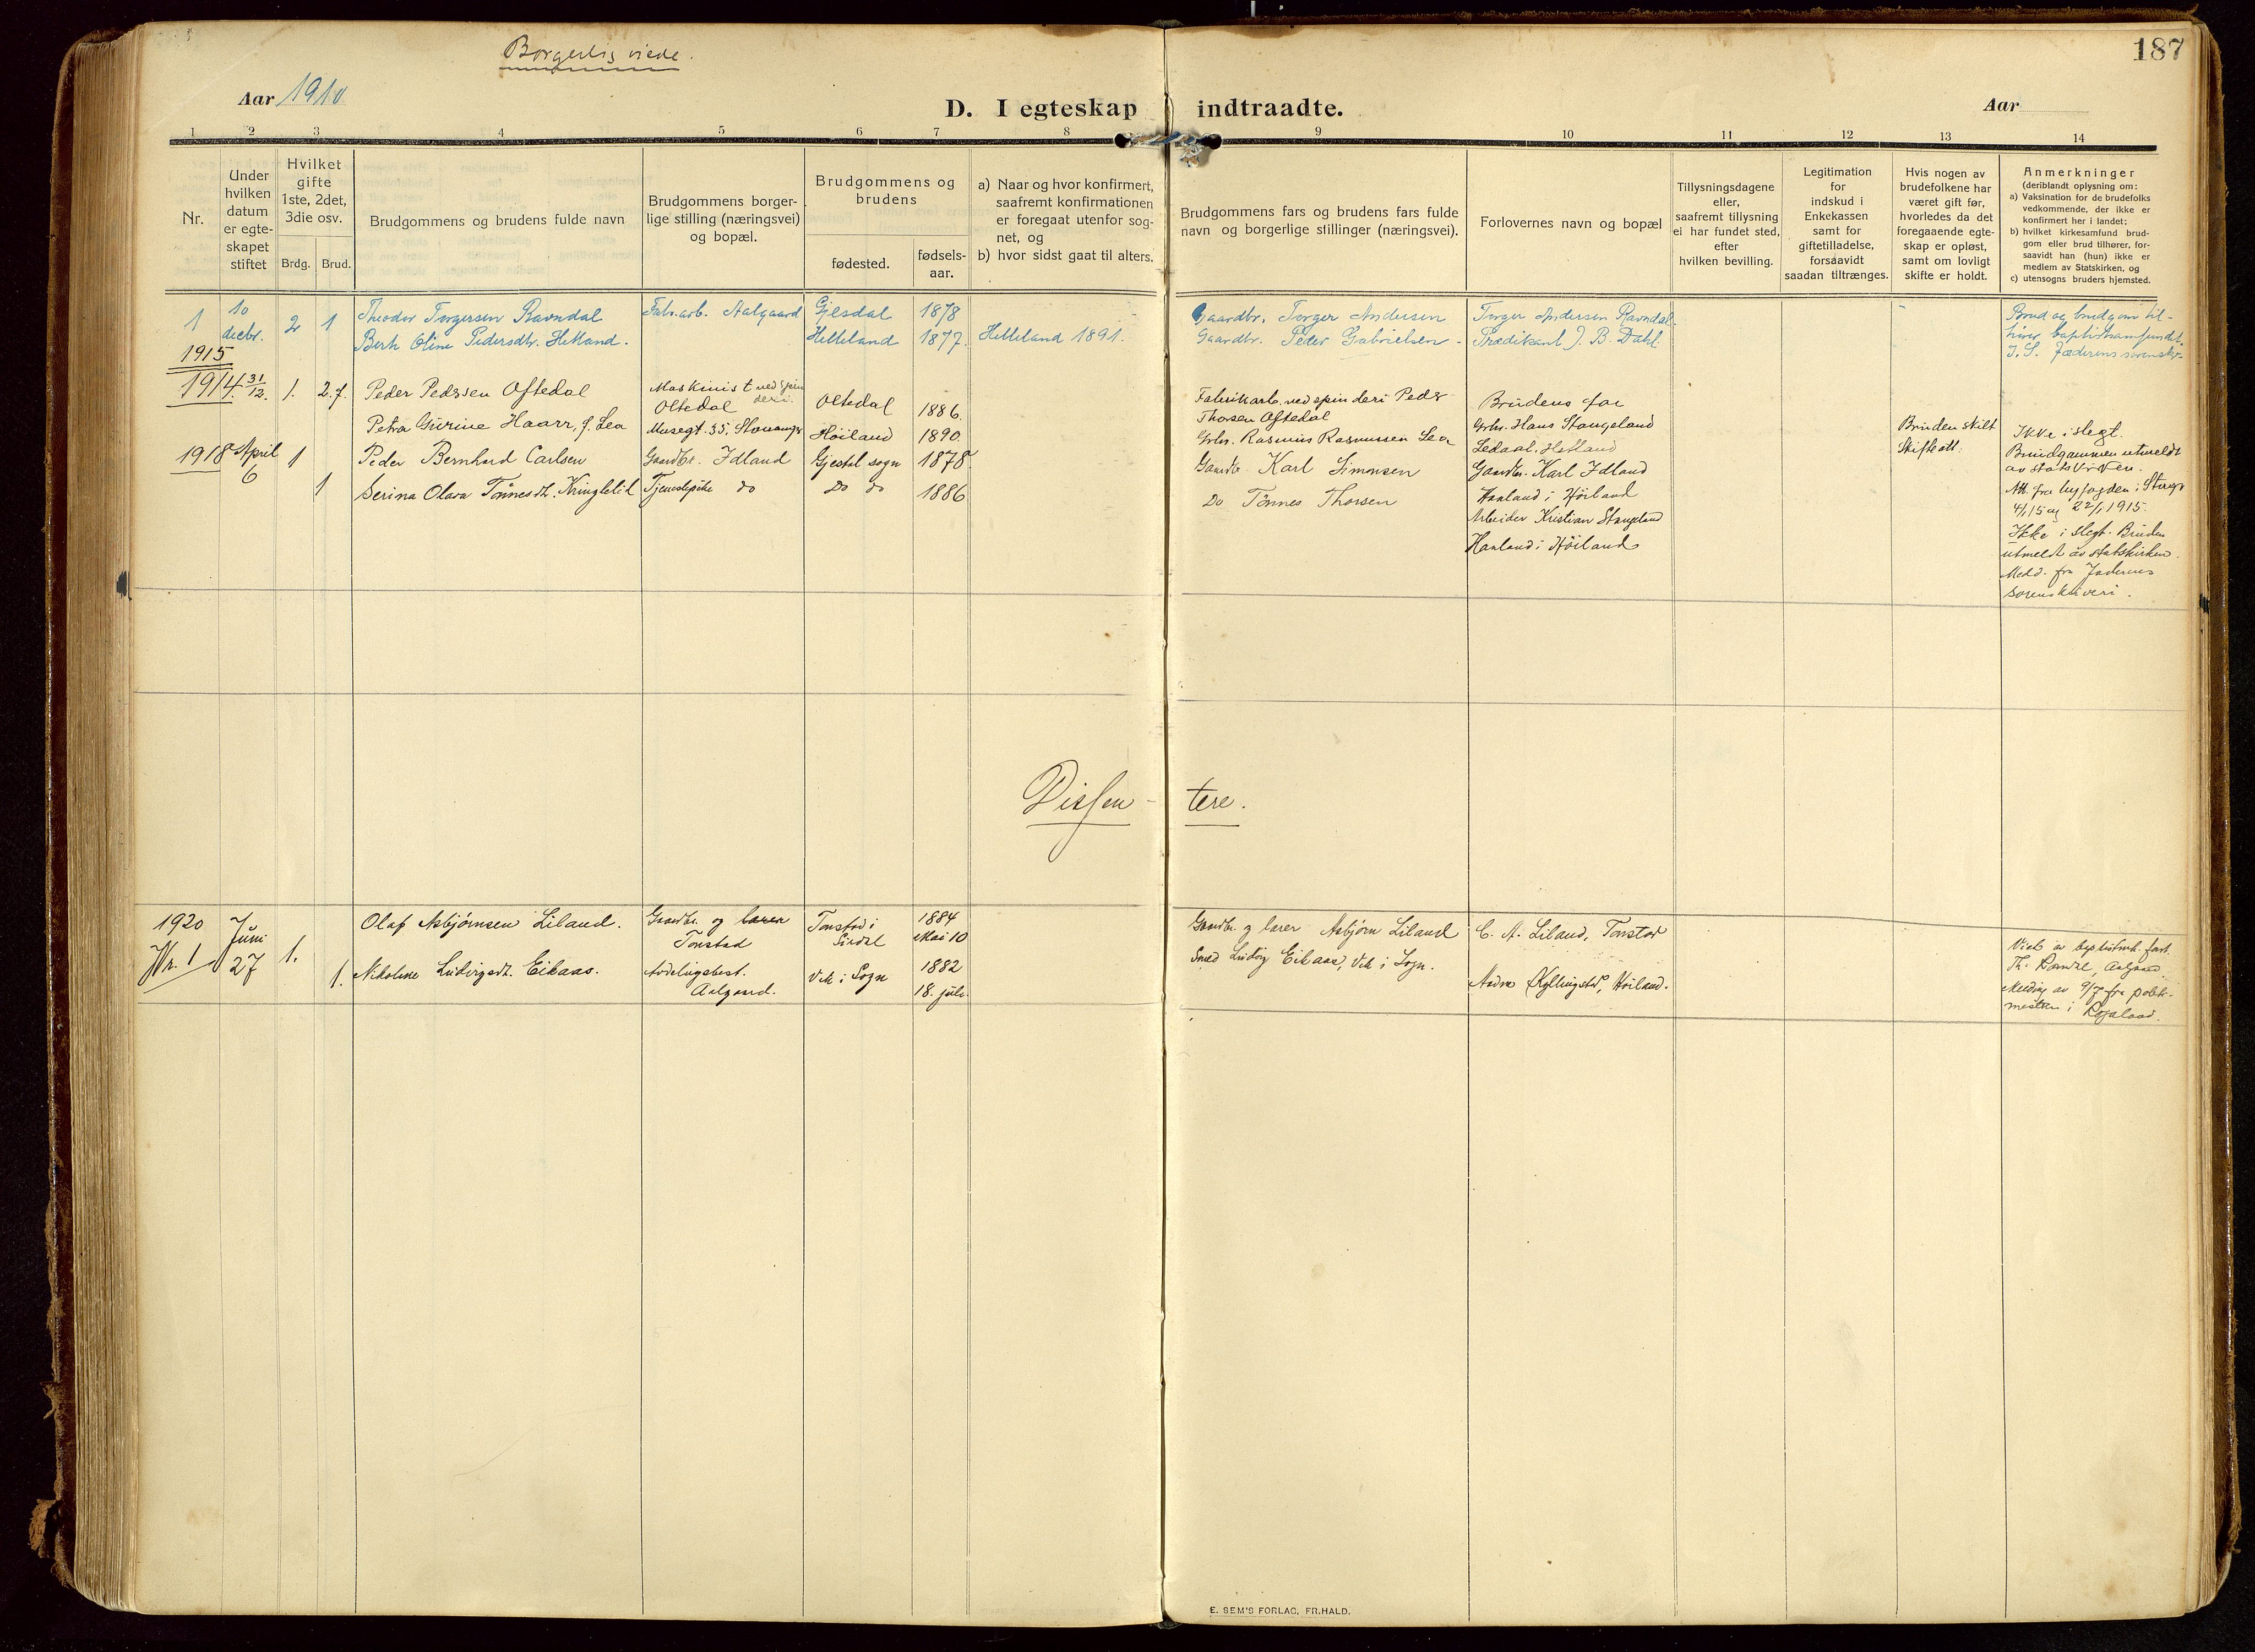 187
Borgerlig viede.
Aar 1910
D. I egteskap indtraadte.
Aar
1 2 3 4 5 6 7 8 9 10 11 12 13 14
Nr.
Under
hvilken
datum
er egte-
skapet
stiftet
Hvilket
gifte
1ste, 2det,
3die osv.
Brdg. Brud.
Brudgommens og brudens fulde navn
Brudgommens borger-
lige stilling (næringsvei)
og bopæl.
Brudgommens og
brudens
fødested.
fødsels-
aar.
a) Naar og hvor konfirmert,
saafremt konfirmationen
er foregaat utenfor sog-
net, og
b) hvor sidst gaat til alters.
Brudgommens fars og brudens fars fulde
navn og borgerlige stillinger (næringsvei).
Forlovernes navn og bopæl
Tillysningsdagene
eller,
saafremt tillysning
ei har fundet sted,
efter
hvilken bevilling.
Legitimation
for
indskud i
Enkekassen
samt for
giftetilladelse,
forsaavidt
saadan tiltrænges.
Hvis nogen av
brudefolkene har
været gift før,
hvorledes da det
foregaaende egte-
skap er opløst,
samt om lovligt
skifte er holdt.
Anmerkninger
(deriblandt oplysning om:
a) Vaksination for de brudefolks
vedkommende, der ikke er
konfirmert her i landet;
b) hvilket kirkesamfund brud-
gom eller brud tilhører, for-
saavidt han (hun) ikke er
medlem av Statskirken, og
c) utensogns bruders hjemsted.
1
10
decbr.
2 1
Theodor Torgersen Ravndal
Berth Oline Pedersdtr. Hetland.
Fabr.arb. Aalgaard
Gjesdal
Helleland
1878
1877.
Helleland 1891.
Gaardbr. Torger Andersen
Gaardbr. Peder Gabrielsen -
Torger Andersen Ravndal.
Prædikant J. B. Dahl
Brud og brudgom til-
hører baptistsamfundet.
J. S. Jæderens sorenskr.
1915
1914. 31/12. 1. 2. f.
Peder Pedersen Oftedal
Petra Gurine Haarr, f. Lea
Maskinist ved spin
deri.
Oltedal
Musegt. 35, Stavanger
Oltedal
Höiland
1886.
1890.
Fabrikarb. ved spinderi Peder
Thorsen Oftedal
Grbr. Rasmus Rasmussen Lea
Brudens far
Grbr. Hans Stangeland
Ledaal, Hetland
Bruden skilt
Skifteatt.
Ikke i slegt.
Brudgommen utmeldt
av statskirken.
Att. fra byfogden i Stvgr
4/1 15 og 22/1 1915.
1918 April
6
1
1
Peder Bernhard Carlsen
Serina Olava Tönnesdtr. Kringleli
Gaardbr. Idland
Tjenestepike do
Gjestal sogn
Do do
1878.
1886
Gaardbr Karl Simonsen
Do Tönnes Thorsen
Gaardbr. Karl Idland
Haaland i Höiland
Arbeider Kristian Stangeland
Haaland i Höiland
Ikke i slegt. Bruden
utmeldt av statskirken.
Medd. fra Jæderens
sorenskriveri.
Dissen- tere.
1920
Nr. 1
Juni
27
1.
1.
Olaf Asbjørnsen Liland.
Nikoline Ludvigsdt. Eikaas.
Gaardbr. og lærer
Tonstad
Avdelingsbest.
Aalgaard.
Tonstad i
Sirdal
Vik i Sogn
1884
Mai 10
1882
18. juli.
Gaardbr og lærer Asbjørn Liland
Smed Ludvig Eikaas, Vik i Sogn.
C. A. Liland, Tonstad
Andrea Kyllingstad, Höiland.
Viet av baptistmk. forst.
Th. Ravndal, Aalgaard.
Melding av 9/7 fra politi-
mesteren i Rogaland.
E. SEM'S FORLAG, FR.HALD.